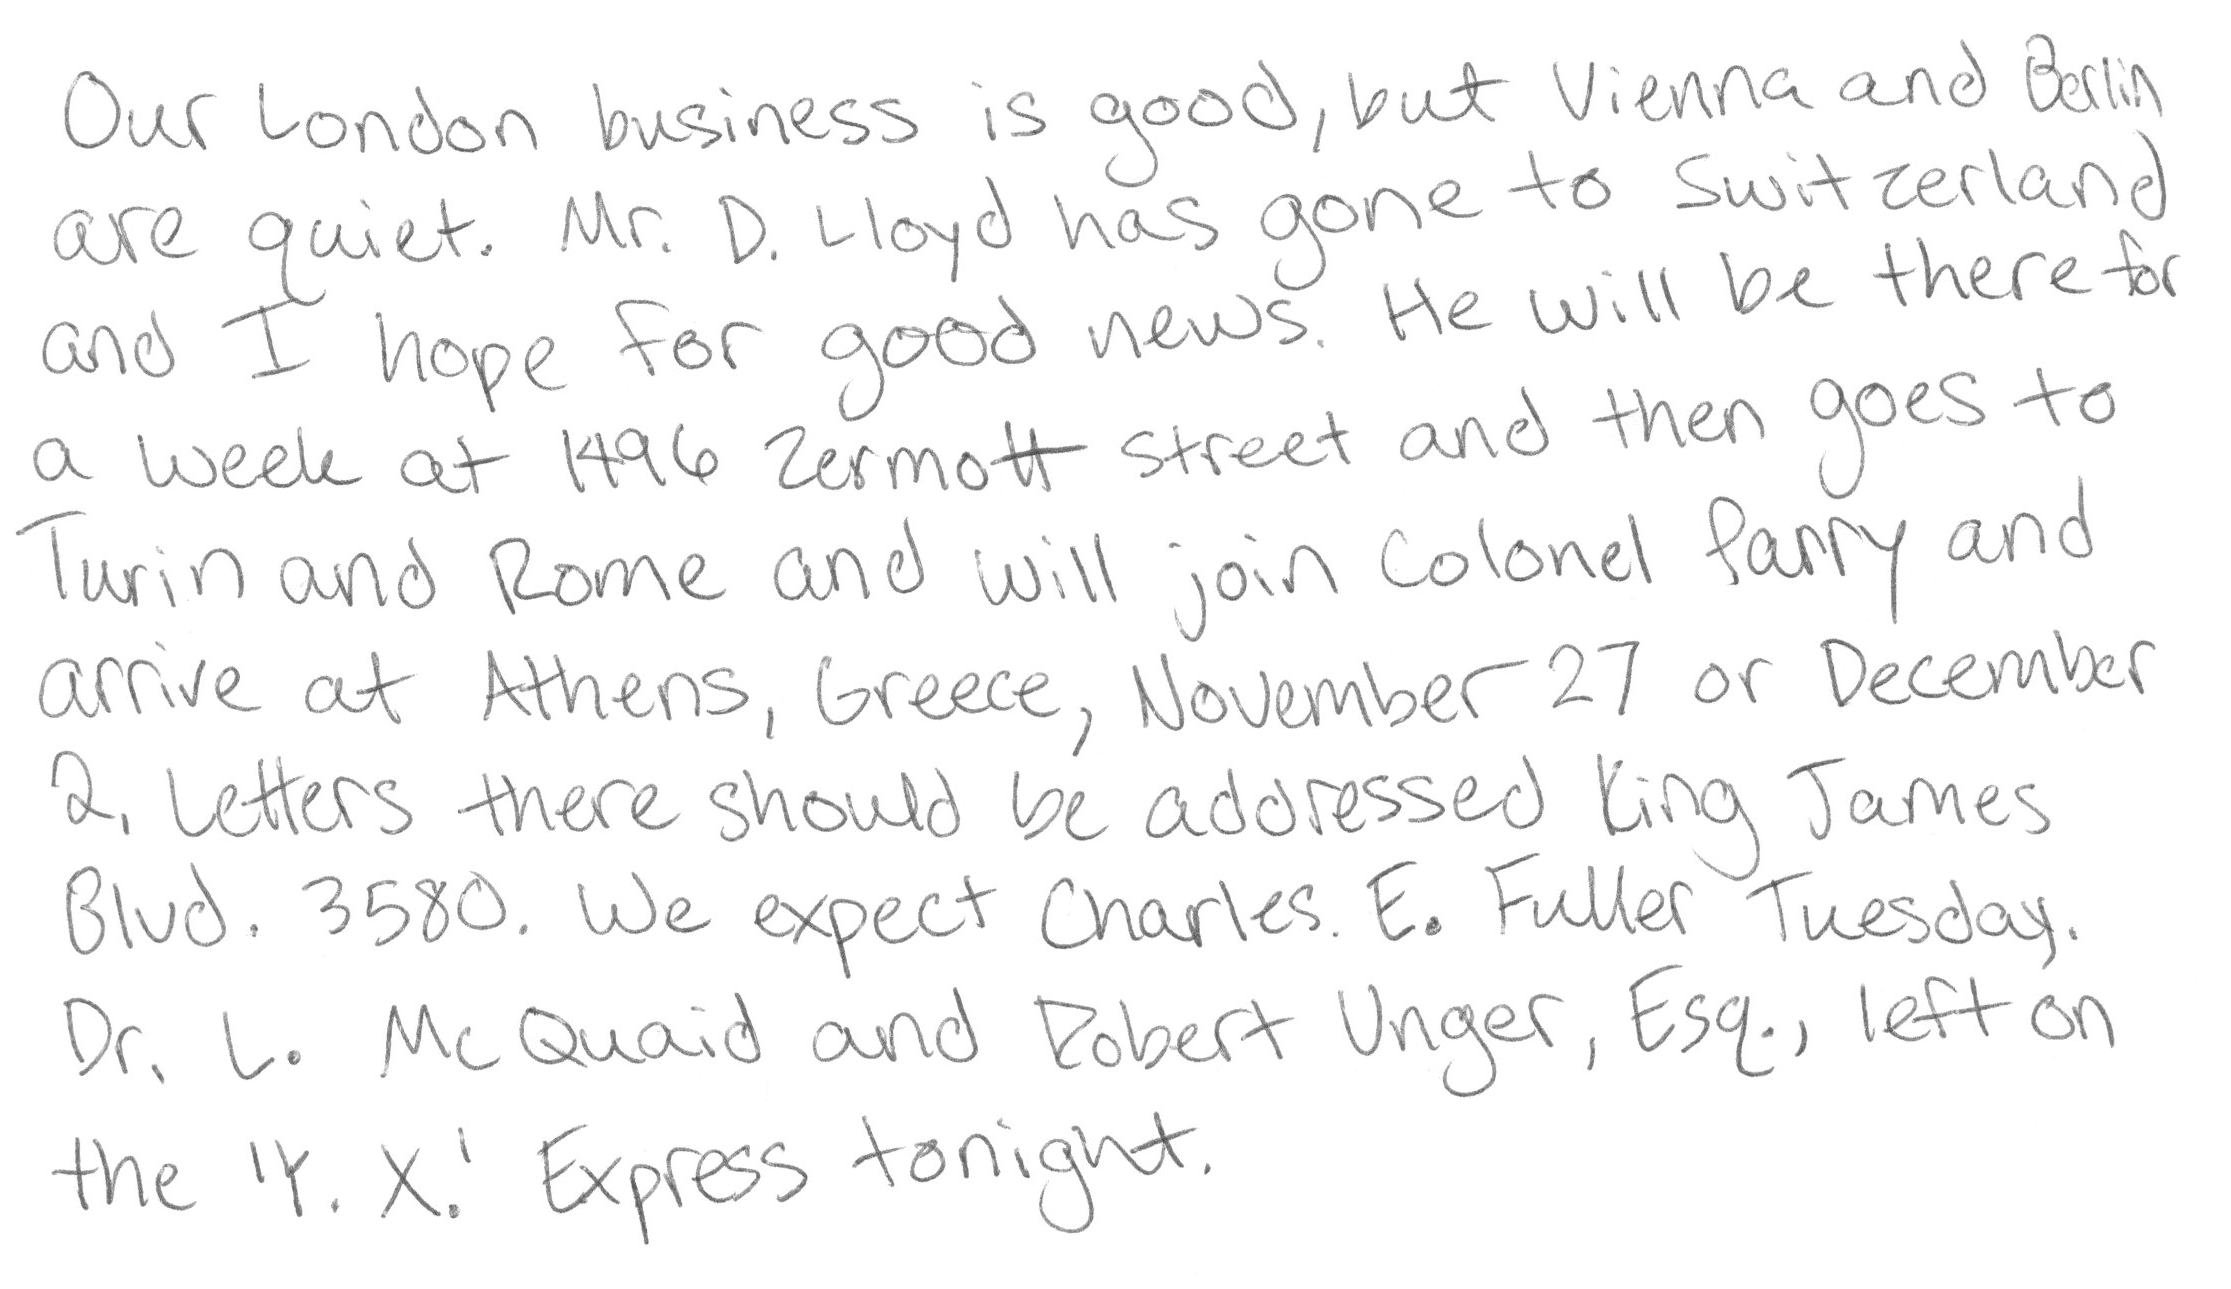 Our London business is good, but Vienna and Berlin
are quiet. Mr. D. Lloyd has gone to Switzerland
and I hope for good news. He will be there for
a week at 1496 Zermott street and then goes to
Turin and Rome and will join Colonel Parry and
arrive at Athens, Greece, November 27 or December
2. Letters there should be addressed King James
Blvd. 3580. We expect Charles. E. Fuller Tuesday.
Dr. L. McQuaid and Robert Unger, Esq., left on
the 'Y. X.' Express tonight.